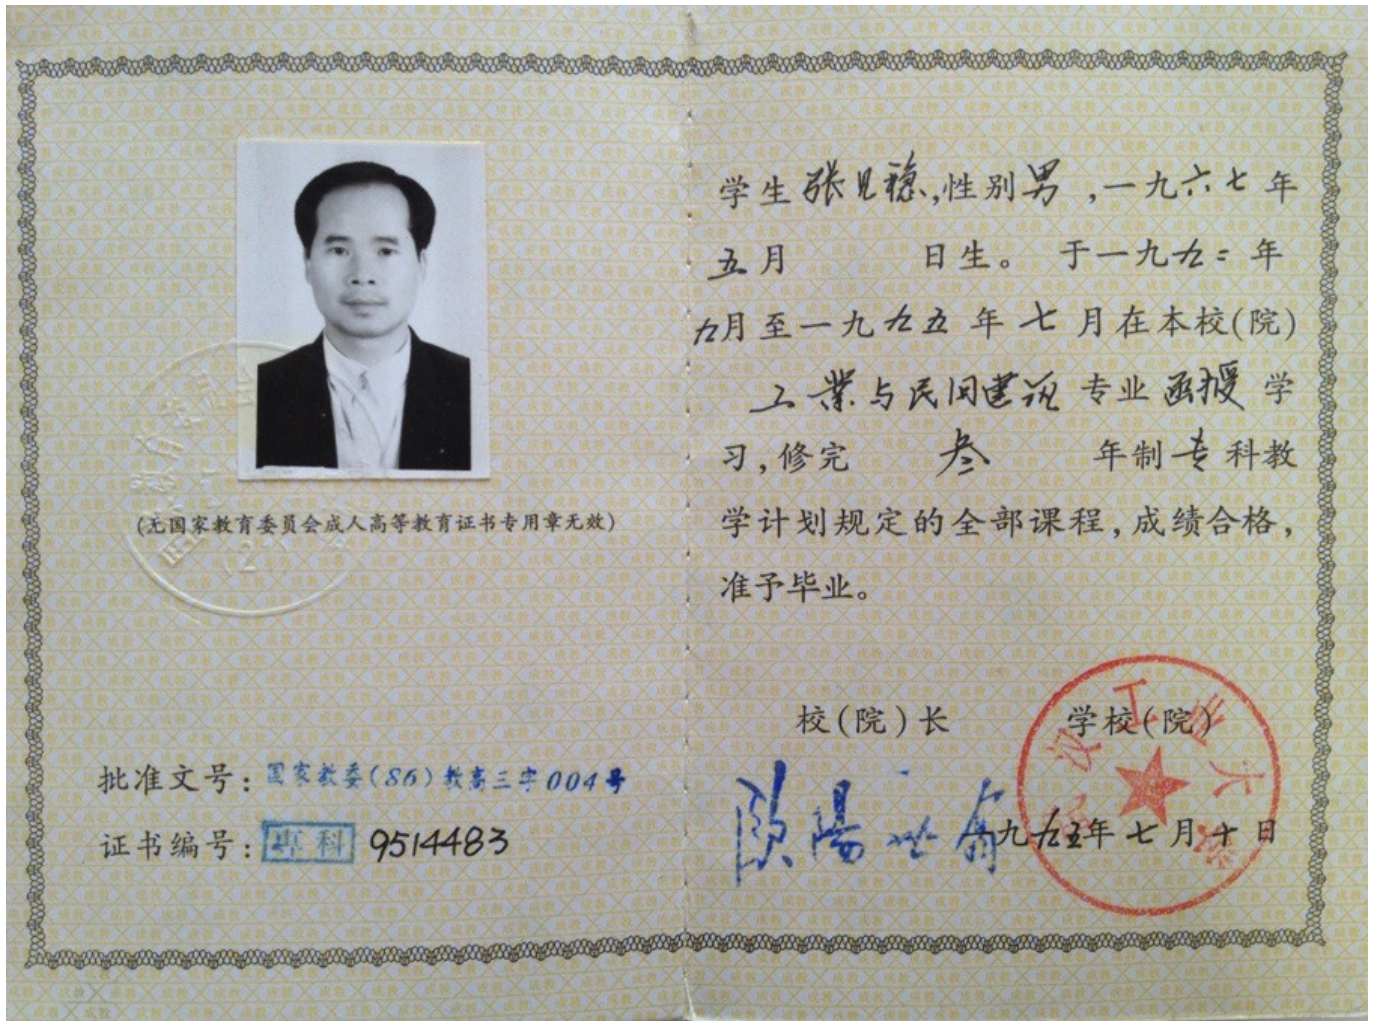 (无国家教育委员会成人高等教育证书专用章无效)
批准文号:国家教委(86)教高三字004号
证书编号:專科 9514483
学生张见稳,性别男,一九六七年
五月 日生。于一九九二年
九月至一九九五年七月在本校(院)
工業与民间建筑专业函授学
习,修完 叁 年制专科教
学计划规定的全部课程,成绩合格,
准予毕业。
校(院)长 学校(院)
欧陽
一九九五年七月十日
汉工业大学